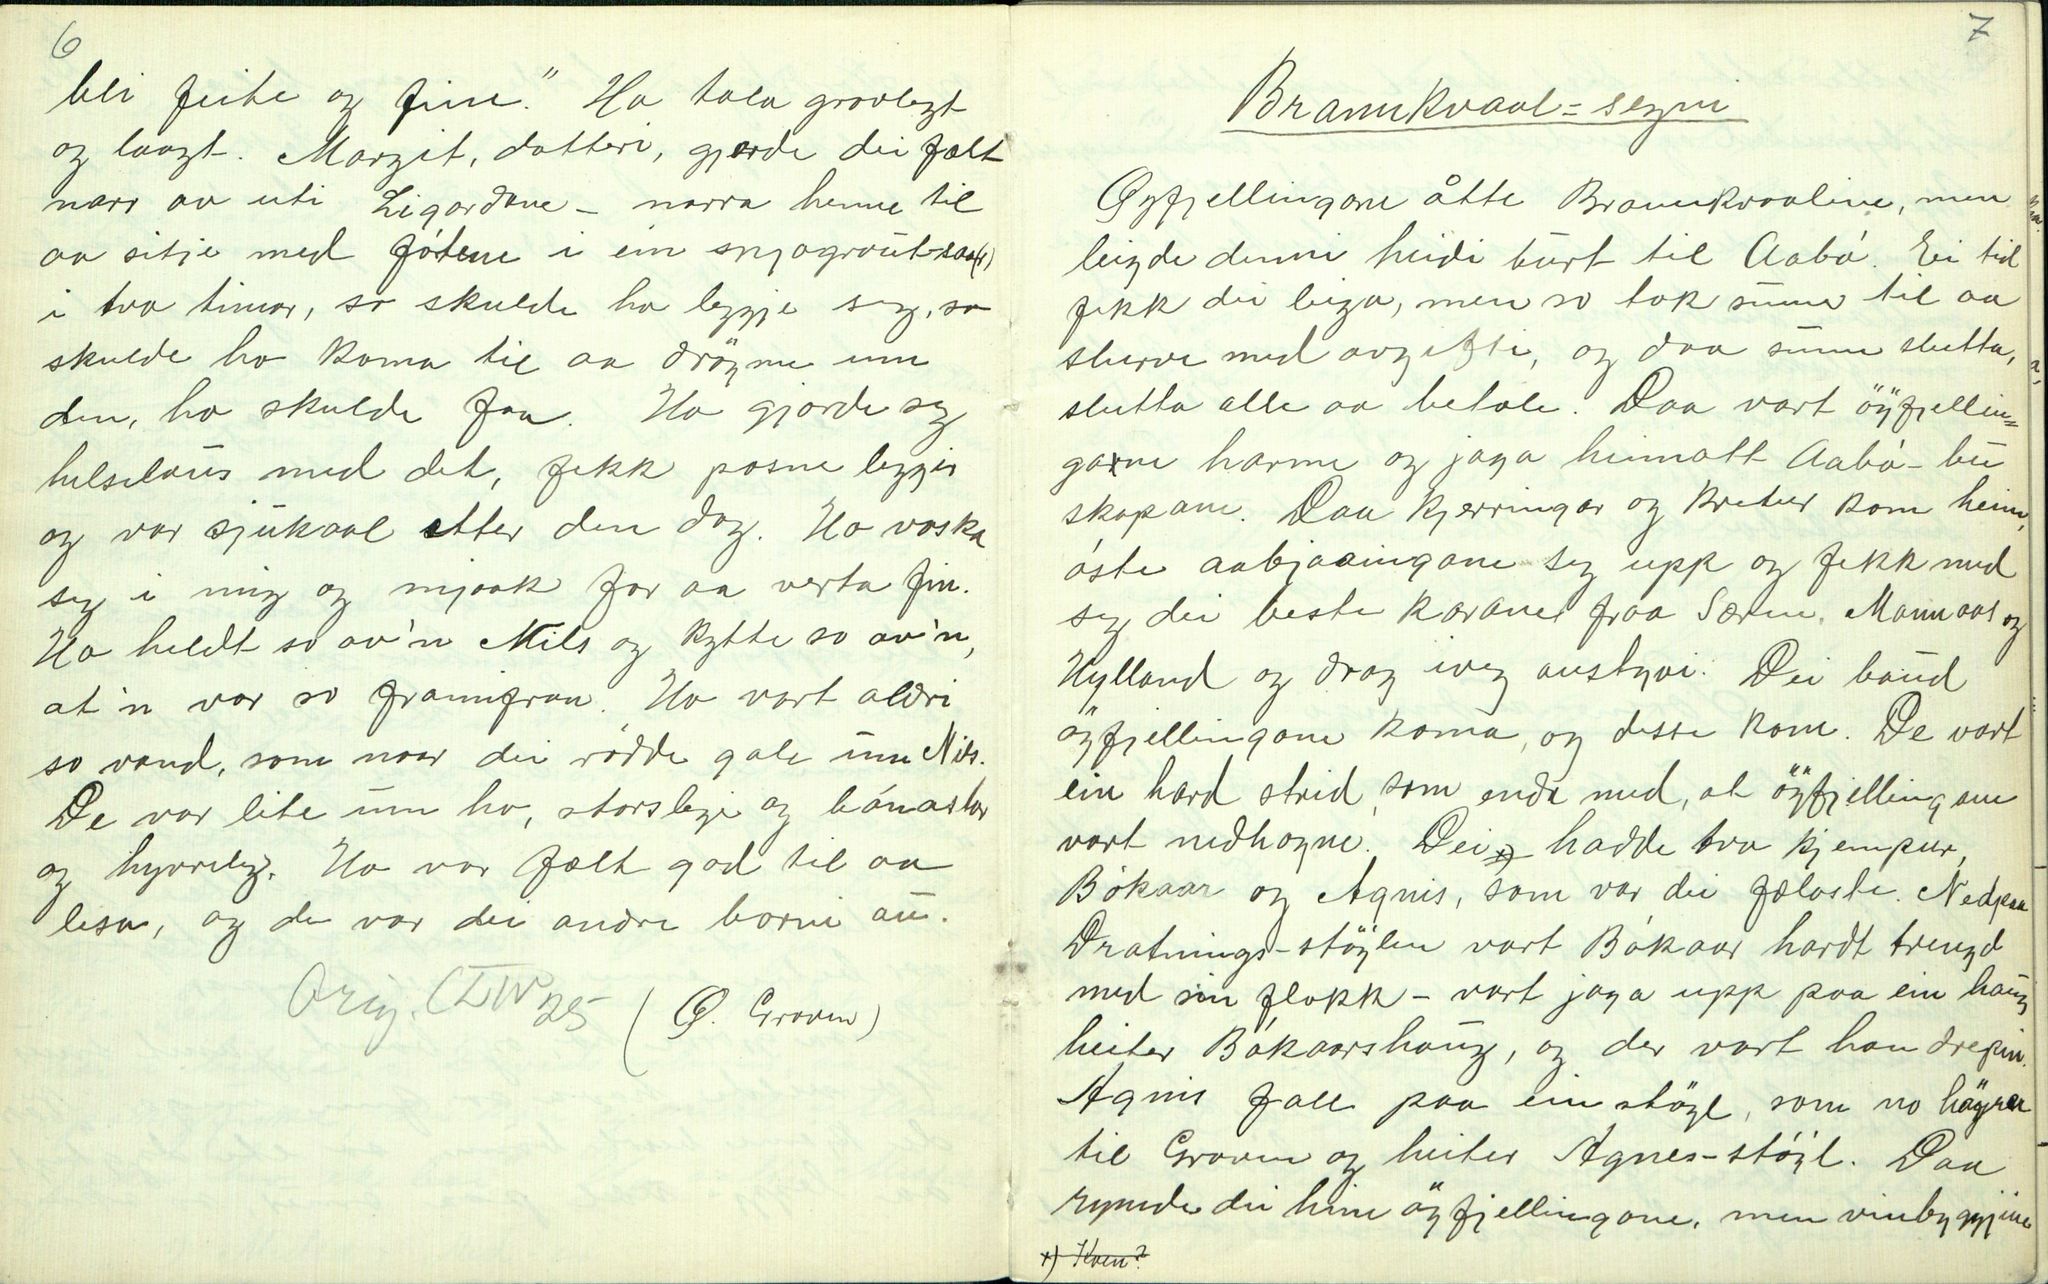 6
bli feite og fine." Ho tala grovlegt
og laagt. Margit, dotteri, gjorde dei fælt
narr av uti Ligardane - narra henne til
aa sitje med fótene i ein snjograut-saa(r)
i tvo timar, so skulde ho leggje seg, so
skulde ho koma til aa dröyme um
den, ho skulde faa. Ho gjorde seg
helselaus med det, fekk posne leggjir
og var sjukaal etter den dag. Ho vaska
seg i mig og mjaak for aa verta fin.
Ho heldt so av'n Nils og kytte so av'n,
at'n var so framifraa. Ho vart aldri
so vond, som naar dei rødde gale um Nils.
De var lite um ho, storslegi og bónastor
og hyvveleg. Ho var fælt god til aa
lesa, og de var dei andre borni au.
Orig. CLIV 25 (Ø. Groven)
7
Brannkvaal=segni
Øyfjellingane åtte Brannkvaaline, men
leigde denni heidi burt til Aabó. Ei tid
fekk dei leiga, men so tok sume til aa
slurve med avgifti, og daa sume slutta,
slutta alle aa betale. Daa vart öyfjellin=
gane harme og jaga heimatt Aabó-bu
skapane. Daa kjerringar og kretur kom heim,
óste aabjaaingane seg upp og fekk med
seg dei beste karane fraa Særen, Mannaas og
Hylland og drog iveg austyvi. Dei baud
öyfjellingane koma, og desse kom. De vart
ein hard strid, som enda med, at öyfjellingane
vart nedhogne. Dei x) hadde tvo kjempur,
Bókaar og Agnis, som var dei fælaste. Nedpaa
Dratnings-stöylen vart Bókaar hardt trengd
med sin flokk - vart jaga upp paa ein haug
heiter Bókaarshaug, og der vart han drepin.
Agnis fall paa ein stöyl, som no höyrer
til Groven og heiter Agnes-stóyl. Daa
rymde dei hine öyfjellingane, men vinbyggjine
x) Kven?